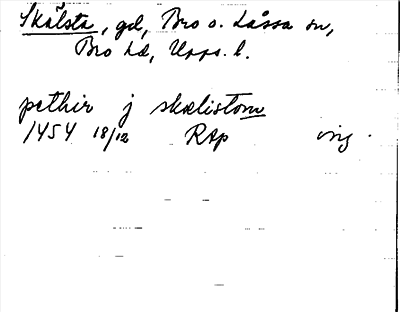 Skälsta, gd, Bro o. Låssa sn,
Bro hd, Upps. l.
pethir j skælistom
1454 18/12 RAp orig.